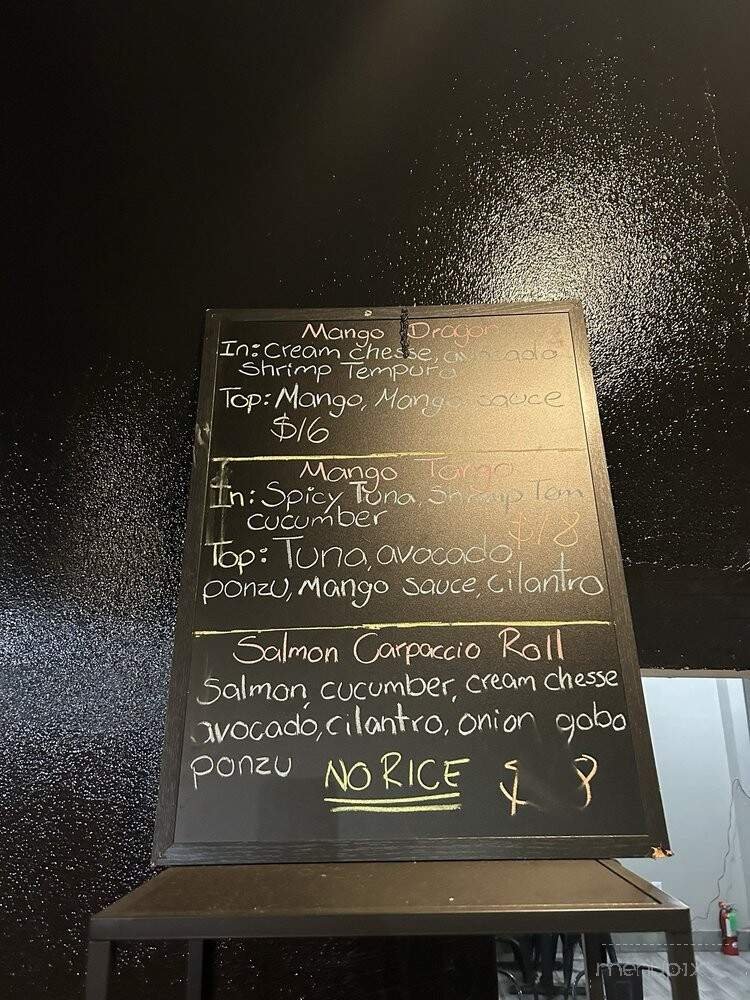 Mango Dragon
In: Cream chesse, avocado
Shrimp Tempura
Top: Mango, Mango sauce
$16
Mango Tango
In: Spicy Tuna, Shrimp Tem
cucumber $18
Top: Tuna, avocado
ponzu, Mango sauce, cilantro
Salmon Carpaccio Roll
Salmon, cucumber, cream chesse
avocado, cilantro, onion gobo
ponzu NO RICE
menupix